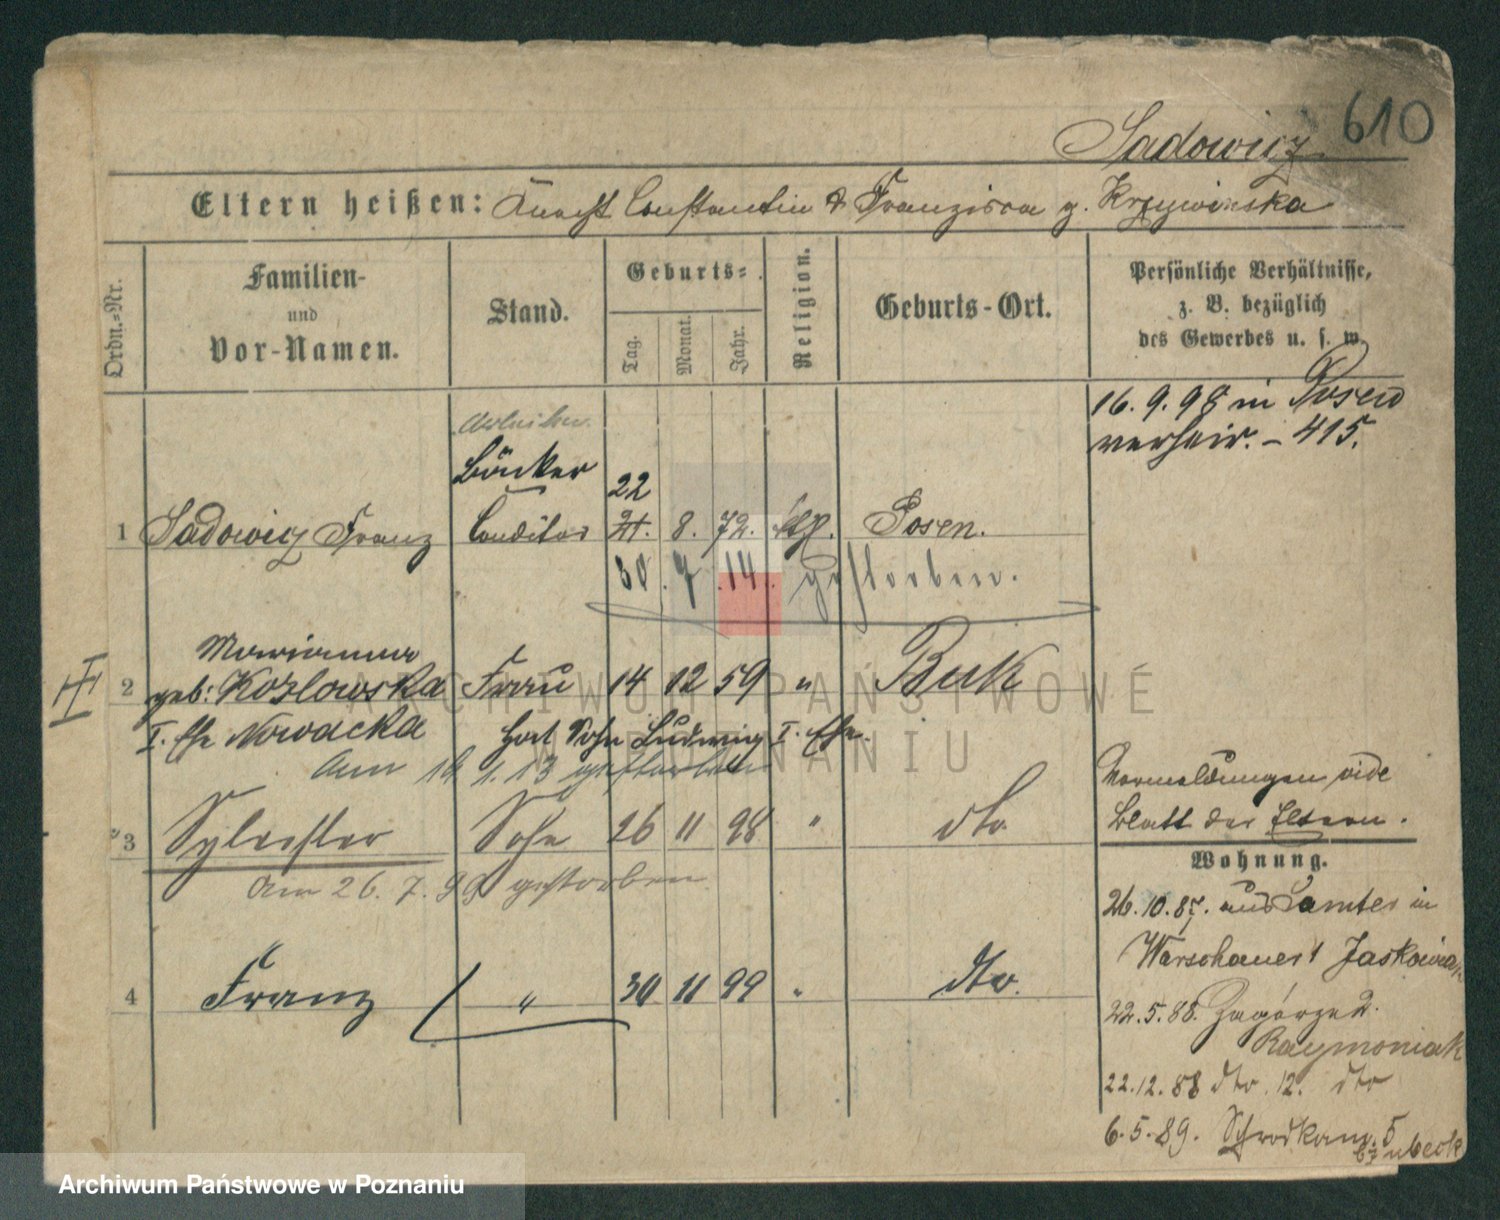 610
Sadowicz
Eltern heißen: Knecht Constantin & Franzisca g. Krzywinska
Ordn.-Nr.
Familien-
und
Vor-Namen.
Stand.
Geburts-
Tag.
Monat.
Jahr.
Religion.
Geburts-Ort.
Persönliche Verhältnisse,
z. B. bezüglich
des Gewerbes u. s. w.
16. 9. 98 in Posen
verheir. - 415.
Arbeiter
Bäcker
22
1 Sadowicz Franz Conditor 21. 8. 72. Posen.
30. 7. 14. gestorben.
Marianna
2 geb: Kozlowska Frau 14 12 59 " Buk
I. Ehe Nowacka hat Sohn Ludwig I. Ehe.
Am 19 1. 13 gestorben
3 Sylvester Sohn 26 11 98 " dto
Am 26. 7. 99 gestorben
4 Franz " 30 11 99 " dto.
Vormeldungen vide
Blatt der Eltern.
Wohnung.
26. 10. 87. aus Samter in
Warschauer 1 Jaskowiak
22. 5. 88. Zagórze 2.
Raymoniak
22. 12. 88 dto 12. dto
6. 5. 89. 5
ARCHIWUM PAŃSTWOWE
W POZNANIU
Archiwum Państwowe w Poznaniu